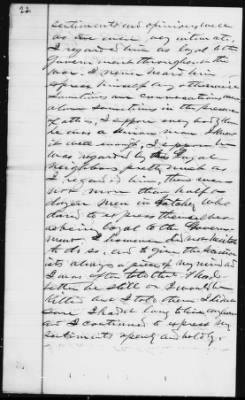 22
sentiments and opinions were
as we were very intimate.
I regarded him as loyal to the
Government throughout the
war. I never heard him
express himself any otherwise
sometimes our conversations were
alone sometimes in the presence
of others, I suppose every body knew
he was a Union man I know
it well enough, I suppose he
was regarded by the loyal
neighbors pretty much as
I regarded him, there was
not more than half a
dozen men in Natchez who
dared to express themselves
as being loyal to the Govern-
ment, I however did not hesitate
to do so, and to give the
always a piece of my mind and
I was often told that I had
better be still or I would be
killed and I told them I did not
care I hadnt long to live anyhow
and I continued to express my
sentiments openly and boldly.